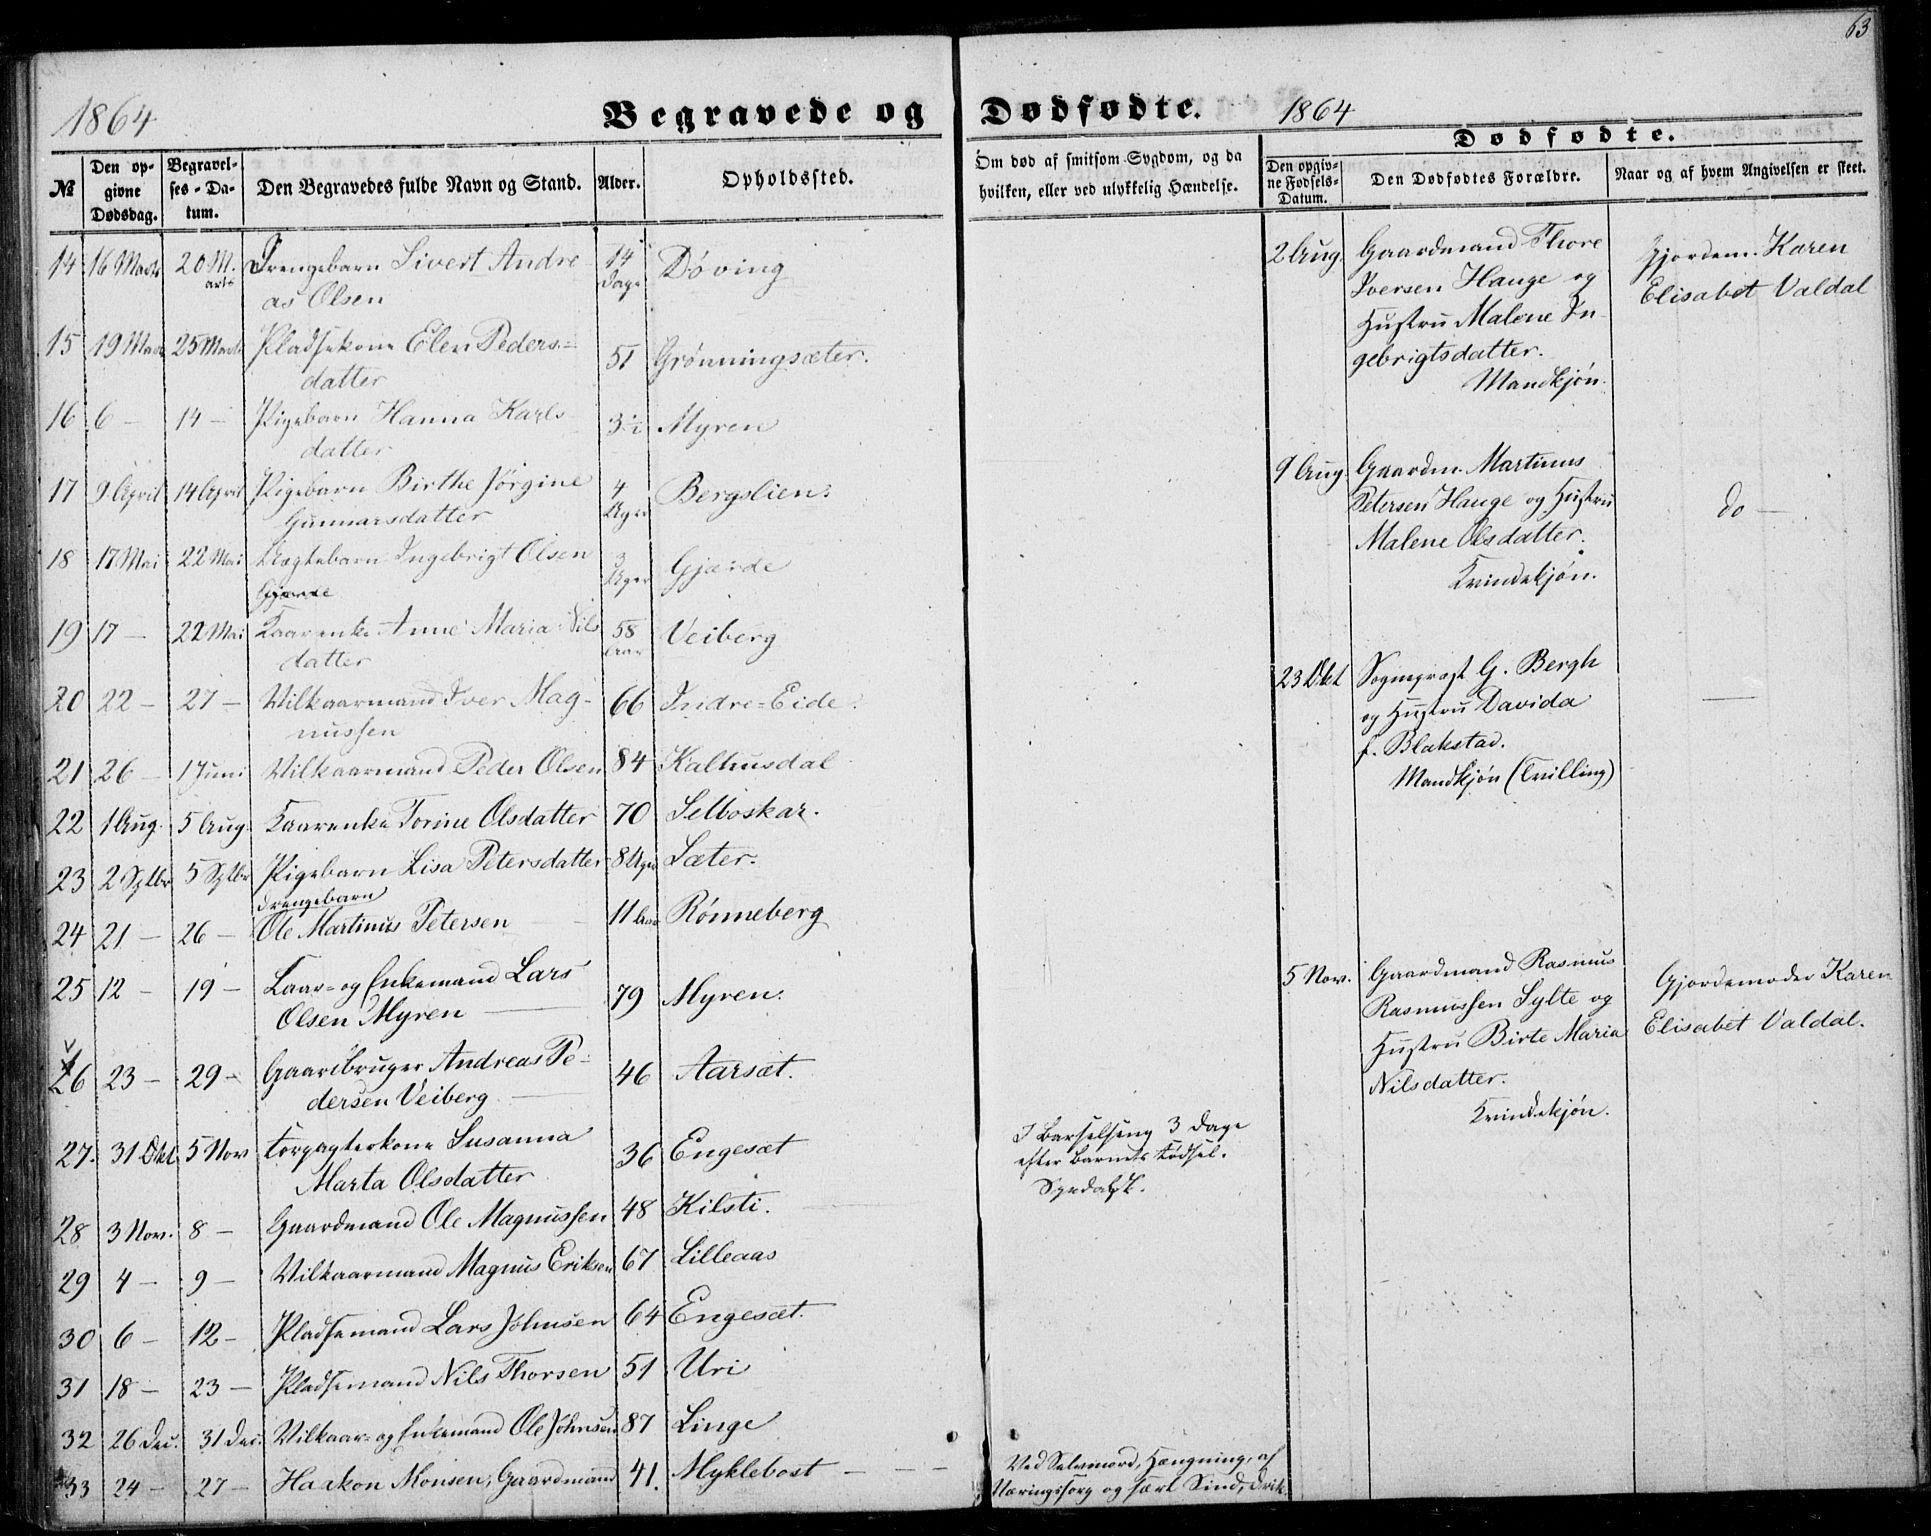 63
1864
Begravede og Dødfødte.
1864
Dødfødte.
№
Den op-
givne
Dødsdag.
Begravel-
ses-Da-
tum.
Den Begravedes fulde Navn og Stand.
Alder.
Opholdssted.
Om død af smitsom Sygdom, og da
hvilken, eller ved ulykkelig Hændelse.
Den opgiv-
ne Fødsels-
Datum.
Den Dødfødtes Forældre.
Naar og af hvem Angivelsen er skeet.
14 16 Marts 20 M. Drengebarn Sivert Andre 14 Døving
arts as Olsen Dage
15 19 Marts 25 Marts Pladsekone Elen Peders- 51 Grønningsæter.
datter
16 6 — 14 — Pigebarn Hanna Karls Myren
datter
17 9 April 14 April Pigebarn Birthe Jørgine 4 Bergslien.
Gunnarsdatter Uger
18 17 Mai 22 Mai Ægtebarn Ingebrigt Olsen 3 Gjærde
Gjærde Uger
19 17 — 22 Mai Kaarenke Anne Maria Nils 58 Veiberg
datter Aar
20 22 — 27 — Vilkaarmand Iver Mag- 66 Indre-Eide.
nussen
21 26 — 1 Juni Vilkaarmand Peder Olsen 84 Kalhusdal
22 1 Aug. 5 Aug. Kaarenke Torine Olsdatter 70 Selboskar.
23 2 Sptbr 5 Sptbr Pigebarn Lisa Petersdatter 8 Uger Sæter.
Drengebarn
24 21 — 26 — Ole Martinus Petersen 11 Aar Rønneberg
25 12 — 19 — Kaar- og Enkemand Lars 79 Myren.
Olsen Myren
26 23 — 29 — Gaardbruger Andreas Pe- 46 Aarsæt.
dersen Veiberg
27. 31 Okt 5 Nov Forpagterkone Susanna 36 Engesæt
Marta Olsdatter
I Barselseng 3 Dage
efter Barnets Fødsel.
28 3 Nov. 8 — Gaardmand Ole Magnussen 48 Kilsti.
29 4 — 9 — Vilkaarmand Magnus Eriksen 67 Lilleaas
30 6 — 12 — Pladsemand Lars Johnsen 64 Engesæt.
31 18 — 23 — Pladsemand Nils Thorsen 51 Uri
32 26 Dec. 31 Dec. Vilkaar- og Enkemand Ole Johnsen 87 Linge
33 24 — 27 — Haakon Monsen, Gaardmand 41. Myklebost — — —
Ved Selvmord, Hængning, af
Næringssorg og sært Sind, Drik.
2 Aug. Gaardmand Thore
Iversen Hauge og
Hustru Malene In-
gebrigtsdatter.
Mandkjøn.
Gjordem. Karen
Elisabet Valdal
9 Aug. Gaardm. Martinus
Petersen Hauge og Hustru
Malene Olsdatter.
Kvindekjøn.
do —
23 Okt Sogneprest G. Bergh
og Hustru Davida
f. Blakstad.
Mandkjøn (Tvilling)
—
5 Nov. Gaardmand Rasmus
Rasmussen Sylte og
Hustru Birte Maria
Nilsdatter.
Kvindekjøn.
Gjordemoder Karen
Elisabet Valdal.